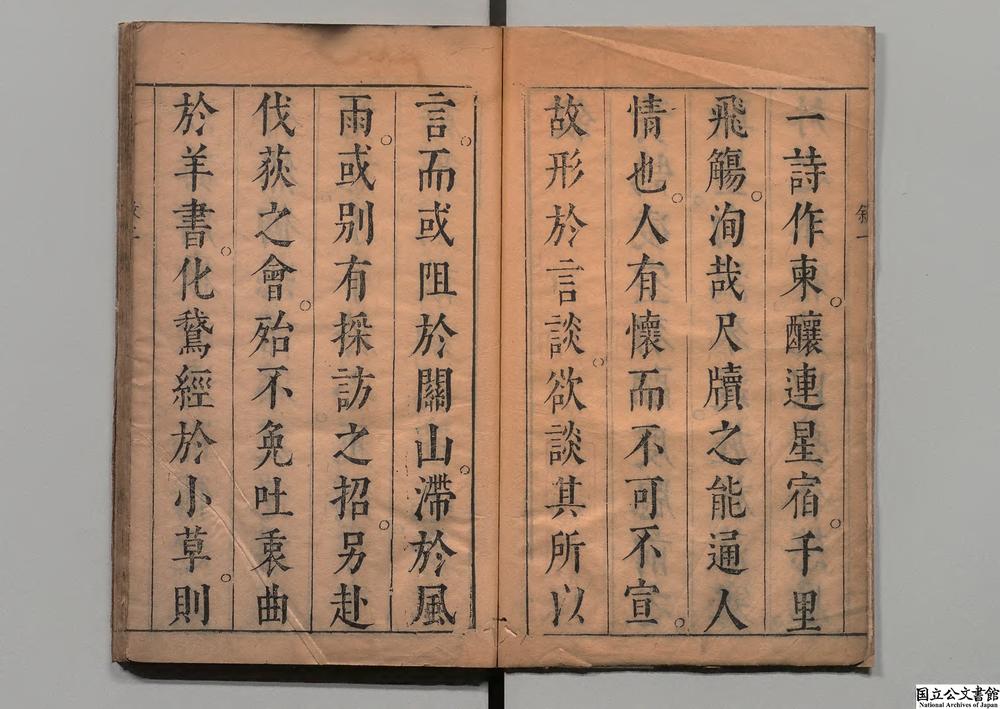 一詩作柬。釀連星宿。千里
飛觴。洵哉尺牘之能通人
情也。人有懷而不可不宣。
故形於言談。欲談其所以
言。而或阻於關山。滯於風
雨。或別有採訪之招。另赴
伐荻之會。殆不免吐衷曲
於羊書。化鵞經於小草。則
国立公文書館
National Archives of Japan